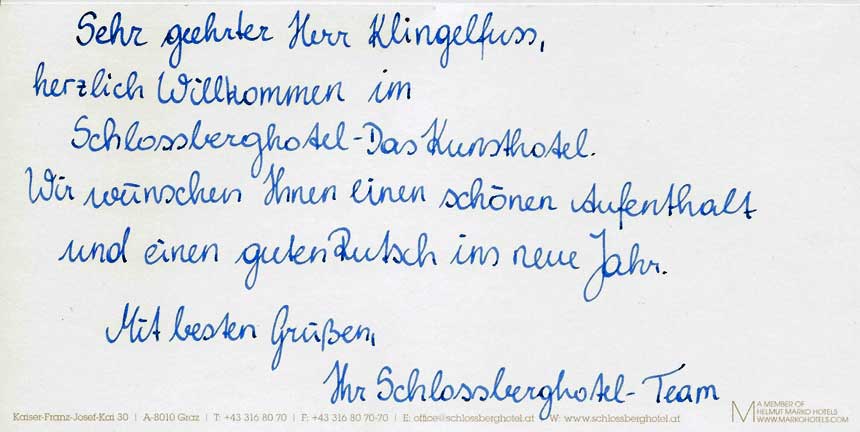 Sehr geehrter Herr Klingelfuss,
herzlich Willkommen im
Schlossberghotel-Das Kunsthotel.
Wir wünschen Ihnen einen schönen Aufenthalt
und einen guten Rutsch ins neue Jahr.
Mit besten Grüßen,
Ihr Schlossberghotel-Team
Kaiser-Franz-Josef-Kai 30 | A-8010 Graz | T: +43 316 80 70 | F: +43 316 80 70-70 | E: office@schlossberghotel.at W: www.schlossberghotel.at
M A MEMBER OF
HELMUT MARKO HOTELS
WWW.MARKOHOTELS.COM